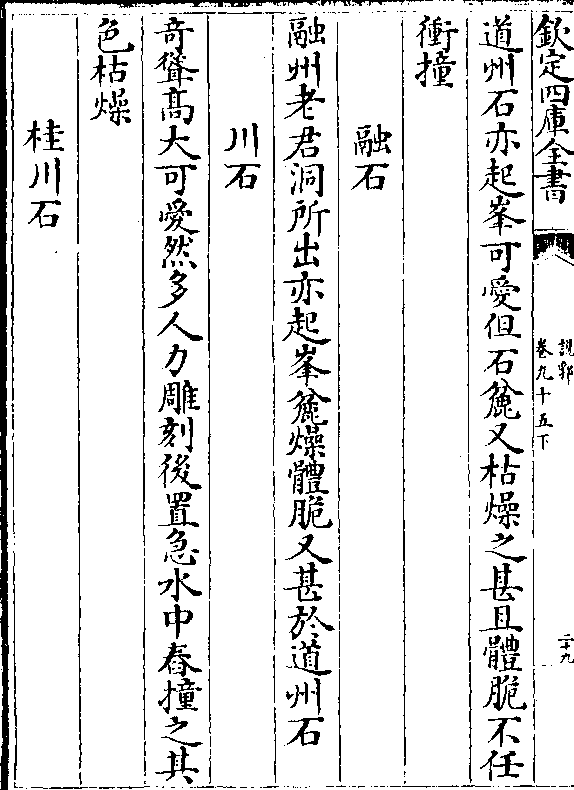 欽定四庫全書
說郛
卷九十五下
二十九
道州石亦起峯可愛但石麄又枯燥之甚且體脆不任
衝撞
融石
融州老君洞所出亦起峯麄燥體脆又甚於道州石
川石
奇聳髙大可愛然多人力雕刻後置急水中舂撞之其
色枯燥
桂川石